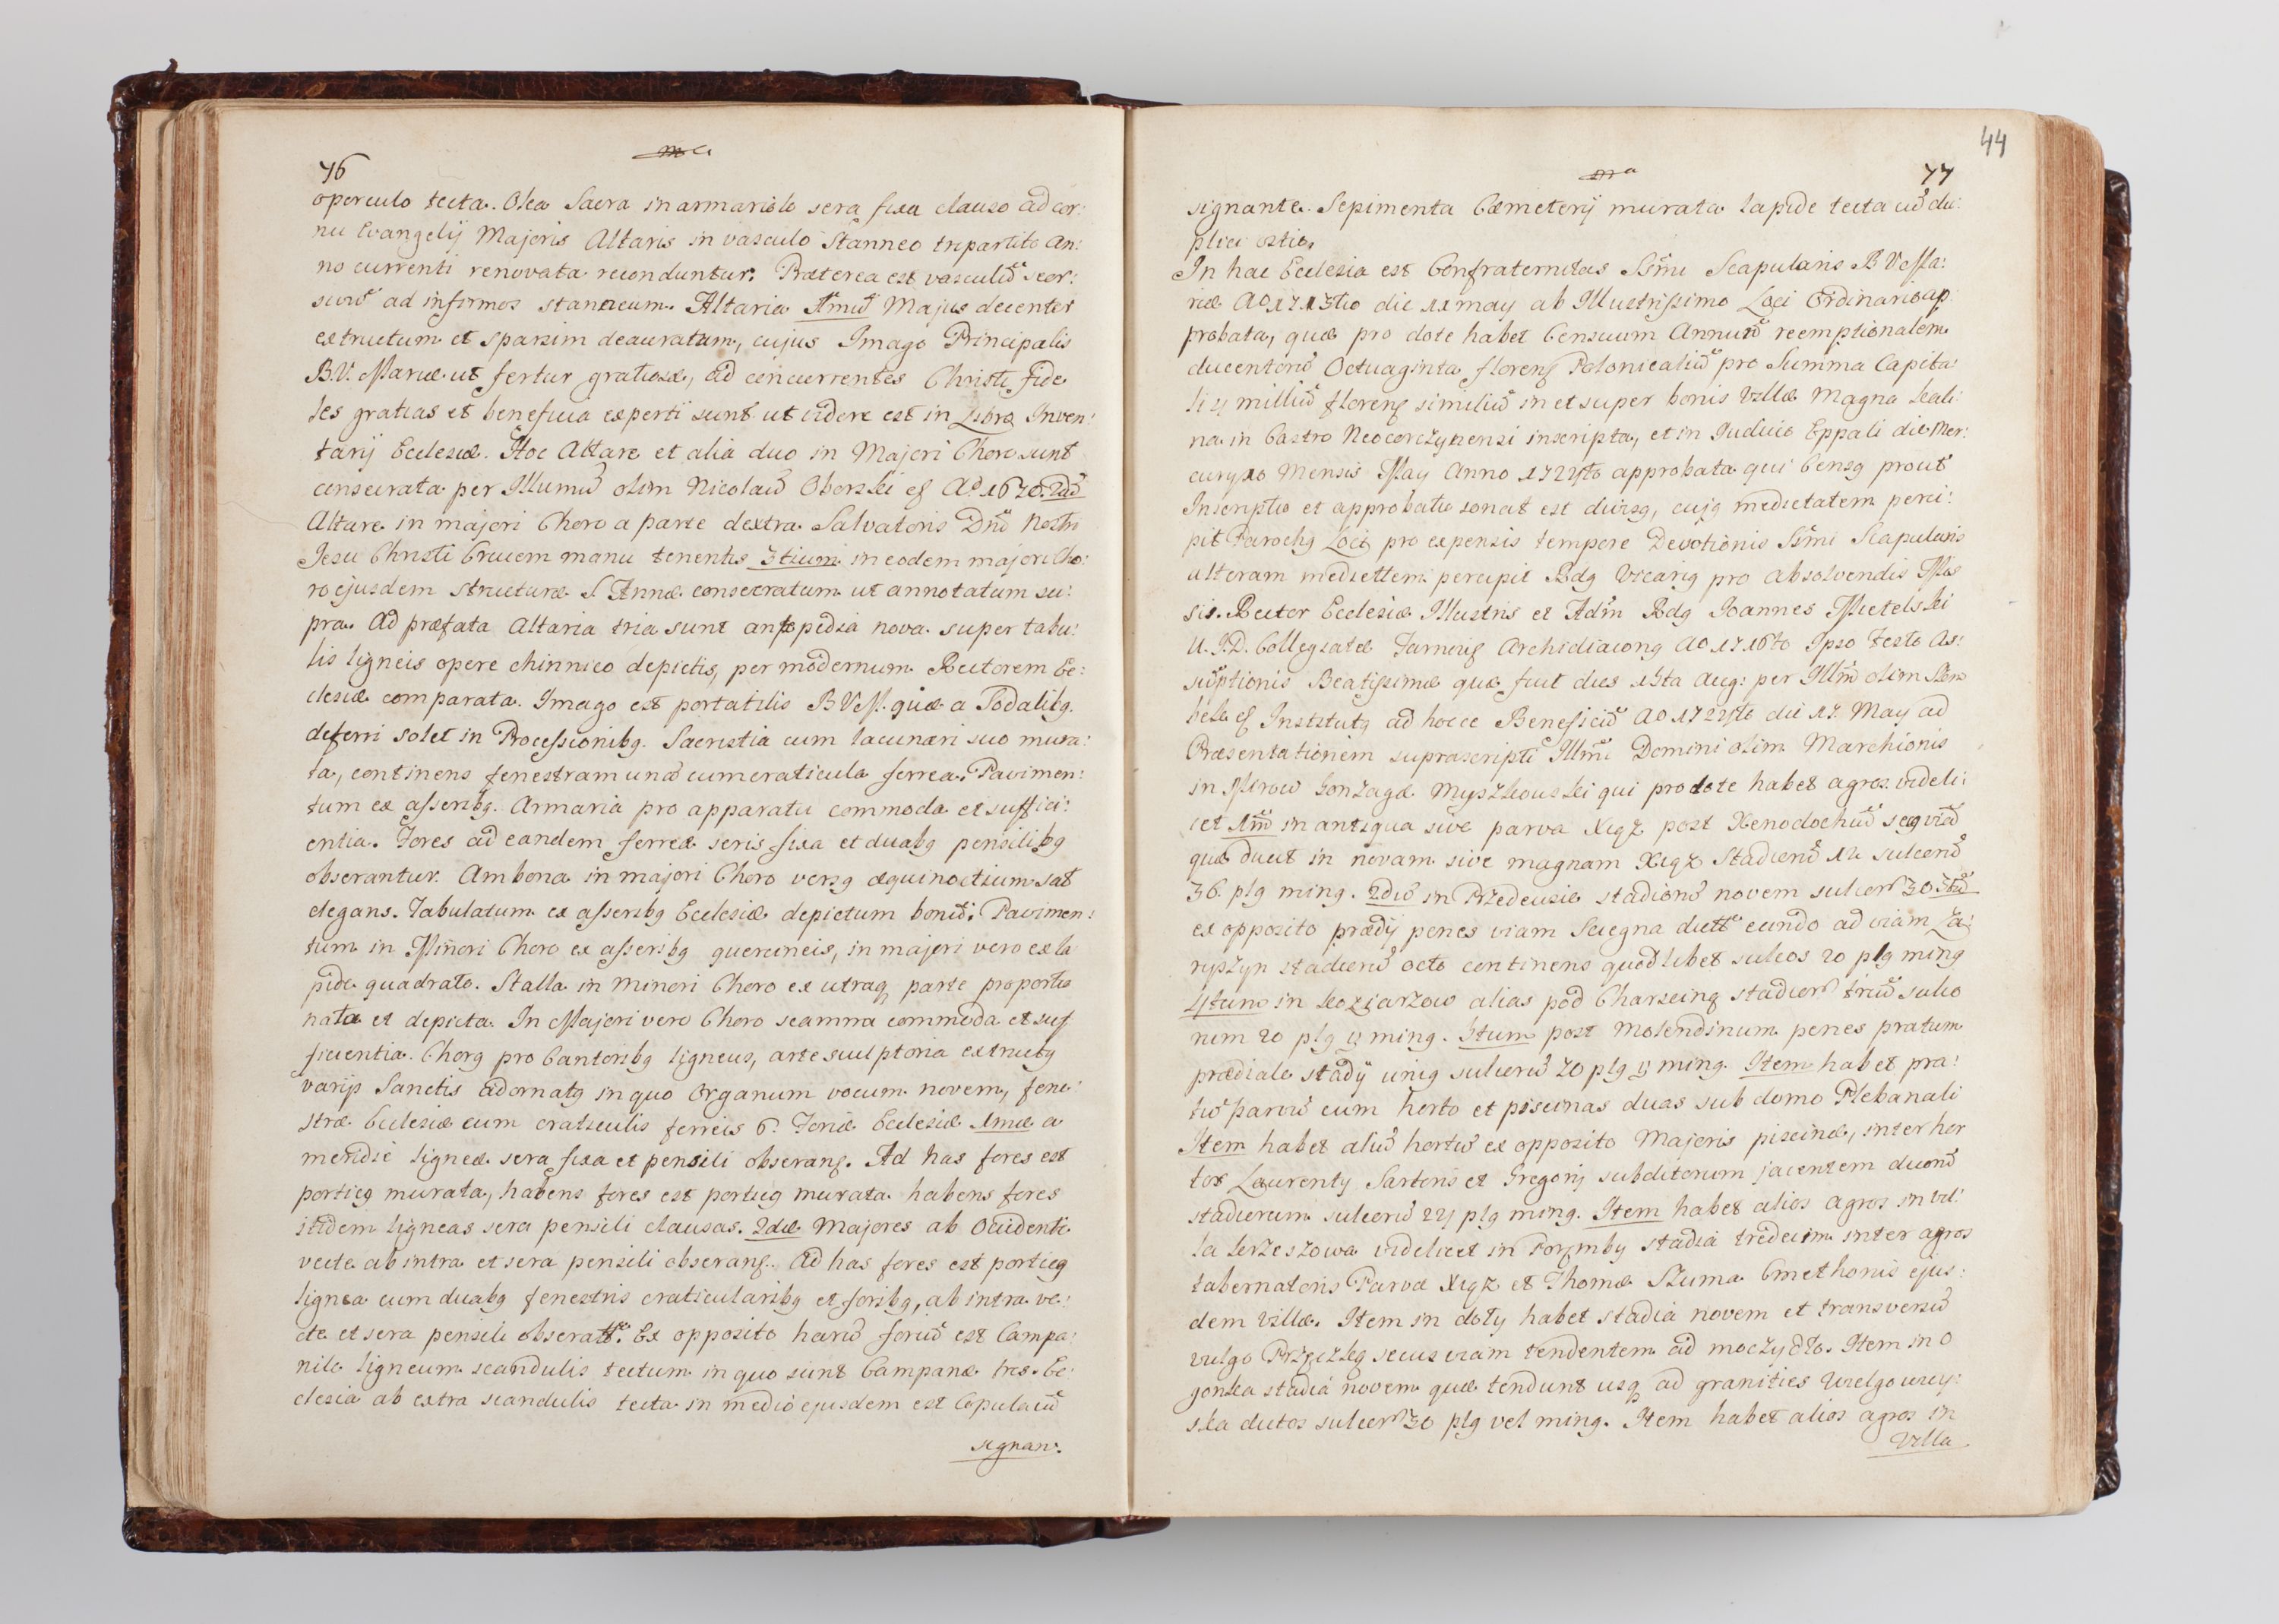 76
operculo tecta. Olea Sacra in armariolo sera fixa clauso ad cor:
nu Evangelij Majoris Altaris in vasculo Stanneo tripartito An:
no currenti renovata reconduntur. Præterea est vasculū seor:
sivū ad infirmos stanneum. Altaria 1mū Majus decenter
extructum et sparsim deauratum, cujus Imago Principalis
B.V. Mariæ ut fertur gratiosæ, ad concurrentes Christi fide
les gratias et beneficia experti sunt ut videre est in Libro Inven:
tarij Ecclesiæ. Hoc Altare et alia duo in Majori Choro sunt
consecrata per Illumū olim Nicolaū Oborski Aº 1670. 2dū
Altare in majori Choro a parte dextra Salvatoris Dnī Nostri
Jesu Christi Crucem manu tenentis 3tium in eodem majori Cho:
ro ejusdem structuræ S Annæ consecratum ut annotatum su:
pra. Ad præfata Altaria tria sunt antipedia nova super tabu:
lis ligneis opere chinnico depictis, per modernum Rectorem Ec:
clesiæ comparata. Imago est portatilis B V M. quæ a Sodalibg
deferri solet in Processionibg. Sacristia cum lacunari suo mura:
ta, continens fenestram unā cum craticula ferrea. Pavimen:
tum ex asseribg. Armaria pro apparatu commoda et suffici:
entia. Fores ad eandem ferreæ seris fixa et duabg pensilibg
obserantur. Ambona in majori Choro versg æquinoctium sat
elegans. Tabulatum ex asseribg Ecclesiæ depictum bonū. Pavimen:
tum in Minori Choro ex asseribg quercineis, in majori vero ex la
pide quadrato. Stalla in minori Choro ex utraq parte proportio
nata et depicta. In Majori vero Choro scamna commoda et suf
ficientia. Chorg pro Cantoribg ligneus, arte sculptoria extructg
varijs Sanctis adornatg in quo Organum vocum novem, fene:
stræ Ecclesiæ cum craticulis ferreis 6. Foriæ Ecclesiæ 1mæ a
meridie ligneæ sera fixa et pensili obserang. Ad has fores est
porticg murata, habens fores est porticg murata habens fores
itidem ligneas sera pensili clausas. 2dæ Majores ab Occidente
vecte ab intra et sera pensili obserang. Ad has fores est porticg
lignea cum duabg fenestris craticularibg et foribg, ab intra ve:
cte et sera pensili obserattr. Ex opposito harū foriū est Campa:
nile ligneum scandulis tectum in quo sunt Campanæ tres. Ec:
clesia ab extra scandulis tecta in medio ejusdem est Copulaiū
signan:
44
77
signante. Sepimenta Cæmeterij murata lapide tecta cū du:
plici ostio.
In hac Ecclesia est Confraternitas Ssmi Scapularis B V Ma:
riæ Aº 1713tio die 11 may ab Illustrissimo Loci Ordinario ap
probata, quæ pro dote habet Censuum Annuū reemptionalem
ducentorū Octuaginta floreng Polonicaliū pro Summa Capita
li 4 milliū floreng similiū in et super bonis Villæ Magna Kali:
na in Castro Neocorczynensi inscripta, et in Judicio Eppali die Mer:
curij 10 Mensis May Anno 1724to approbata qui Censg prout
Inscriptio et approbatio sonat est divisg, cujg medietatem perci:
pit Parochg Loci pro expensis tempore Devotionis Ssmi Scapularis
alteram mediettem percipit Rdg Vicarig pro absolvendis Mis
sis. Rector Ecclesiæ Illustris et Adm Rdg Joannes Mietelski
U.J.D. Collegiatæ Tarnovig Archidiacong Aº 1716to Ipso Festo As:
sūptionis Beatissimæ quæ fuit dies 15ta Aug: per Illm̄ olim
Institutg ad hocce Beneficiū Aº 1724to die 17. May ad
Præsentationem suprascripti Illmi Domini olim Marchionis
in Mirow Gonzagæ Myszkowski qui pro dote habet agros videli:
cet 1mū in antiqua sive parva Xiąż post Xenodochiū seq viā
quæ ducit in novam sive magnam Xiąż Stadionū 12 sulconū
36. plg ming. 2dū in Przedewsie stadionū novem sulcor 30 3tiū
ex opposito prædij penes viam Sciegna dictt eundo ad viam Za:
ryszyn stadionū octo continens quodlibet sulcos 20 plg ming
4tum in Koziarzow alias pod Charscing stadior triū sulco
rum 20 plg vl ming. 5tum post Molendinum penes pratum
prædiale stadij unig sulcorū 20 plg vl ming. Item habet pra:
tū parvū cum horto et piscinas duas sub domo Plebanali
Item habet aliū hortū ex opposito Majoris piscinæ, inter hor
tos Laurentij Sartoris et Gregorij subditorum jacentem duorū
stadiorum sulcorū 24 plg ming. Item habet alios agros in vil:
la Krzeszowa videlicet in Poręmby stadia tredecim inter agros
tabernatoris Parvæ Xiąż et Thomæ Szuma Cmethonis ejus:
dem Villæ. Item in doły habet stadia novem et transversū
vulgo Przeczkę secus viam tendentem ad moczydło. Item in O
gonka stadia novem quæ tendunt usq ad granities Wielgowiey:
ska dictos sulcor 30 plg vel ming. Item habet alios agros in
Villa